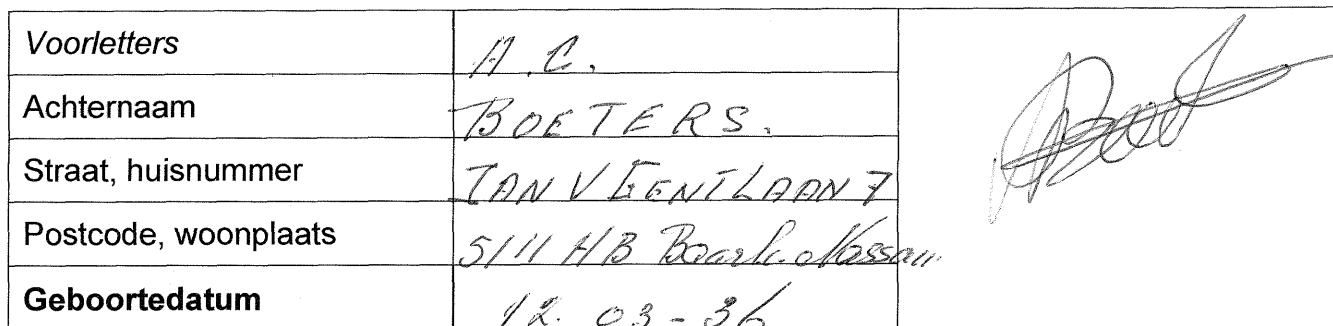 Voorletters A.C.
Achternaam BOETERS.
Straat, huisnummer JAN V GENTLAAN 7
Postcode, woonplaats 5111 HB Baarle-Nassau
Geboortedatum 12-03-36